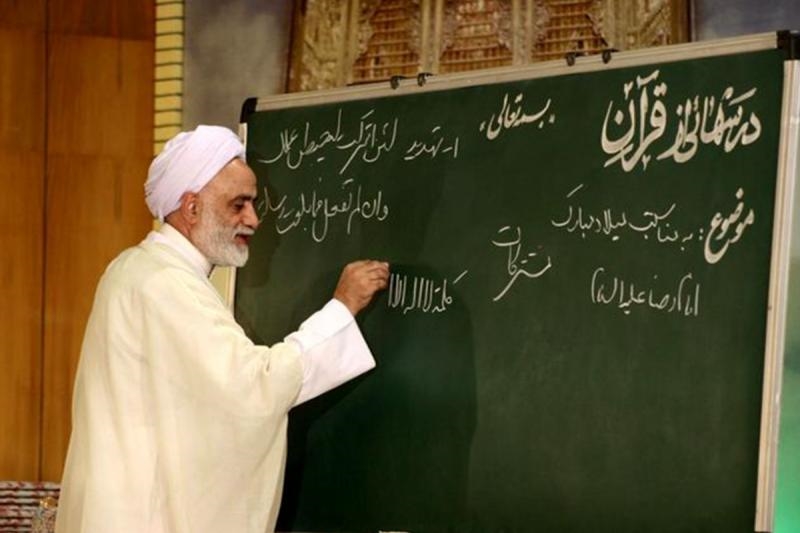 درسهائی از قرآن
«بسمه تعالی»
موضوع: به مناسبت میلاد مبارک
امام رضا علیه السلام
مشترکات
۱- تهدید لئن اشرکت لیحبطن عملک
وان لم تفعل فما بلغت رسالته
کلمة لا اله الا ا